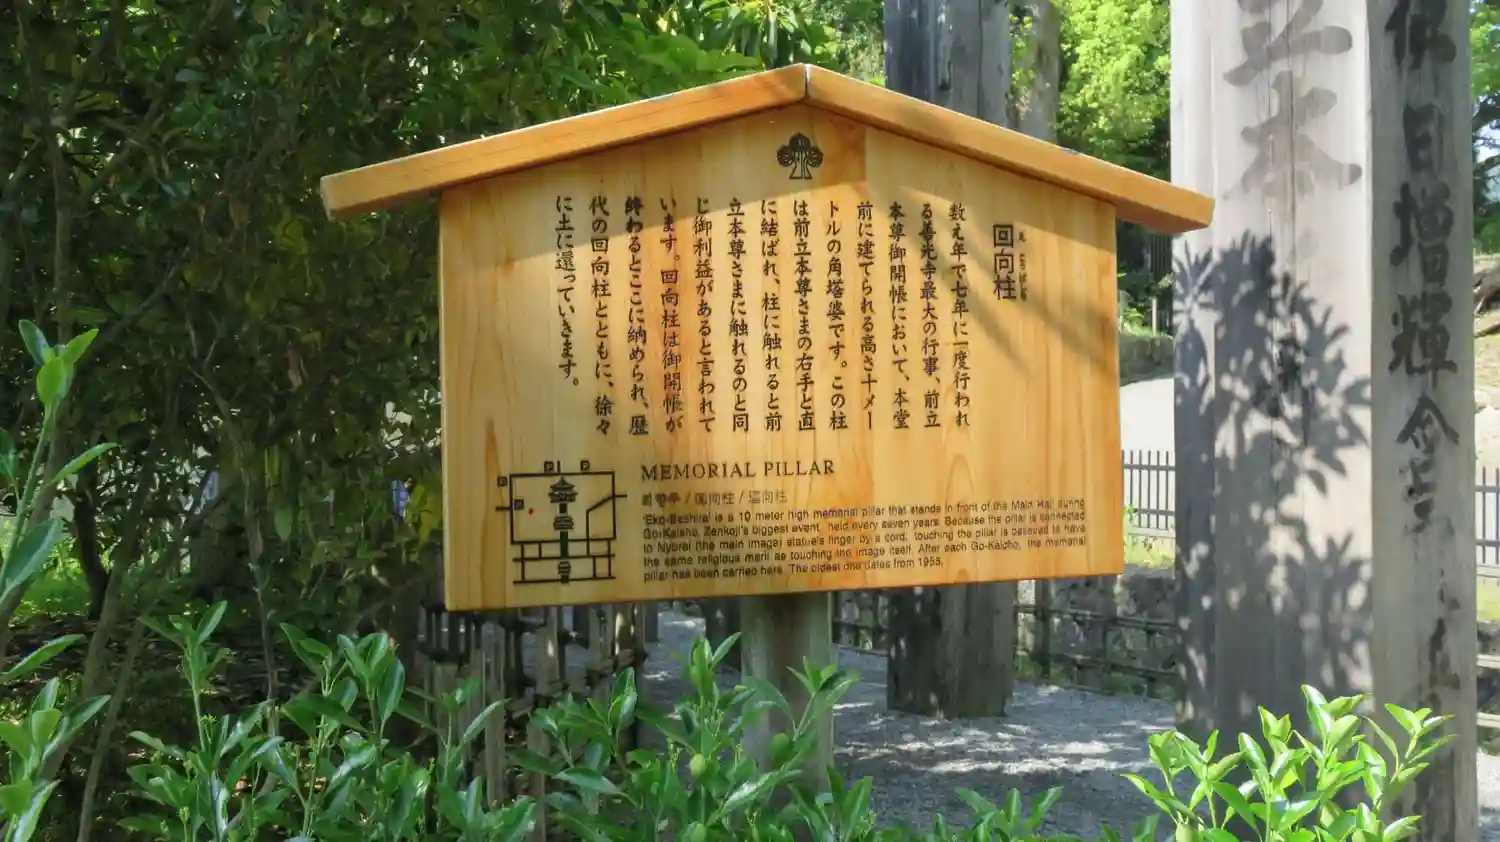 回向柱
数え年で七年に一度行われ
る善光寺最大の行事、前立
本尊御開帳において、本堂
前に建てられる高さ十メー
トルの角塔婆です。この柱
は前立本尊さまの右手と直
に結ばれ、柱に触れると前
立本尊さまに触れるのと同
じ御利益があると言われて
います。回向柱は御開帳が
終わるとここに納められ、歴
代の回向柱とともに、徐々
に土に還っていきます。
MEMORIAL PILLAR
회향주 / 圓向柱 / 逥向柱
'Eko-Bashira' is a 10 meter high memorial pillar that stands in front of the Main Hall during
Go-Kaicho, Zenkoji's biggest event, held every seven years. Because the pillar is connected
to Nyorai (the main image) statue's finger by a cord, touching the pillar is believed to have
the same religious merit as touching the image itself. After each Go-Kaicho, the memorial
pillar has been carried here. The oldest one dates from 1955.
立本
佛日増輝